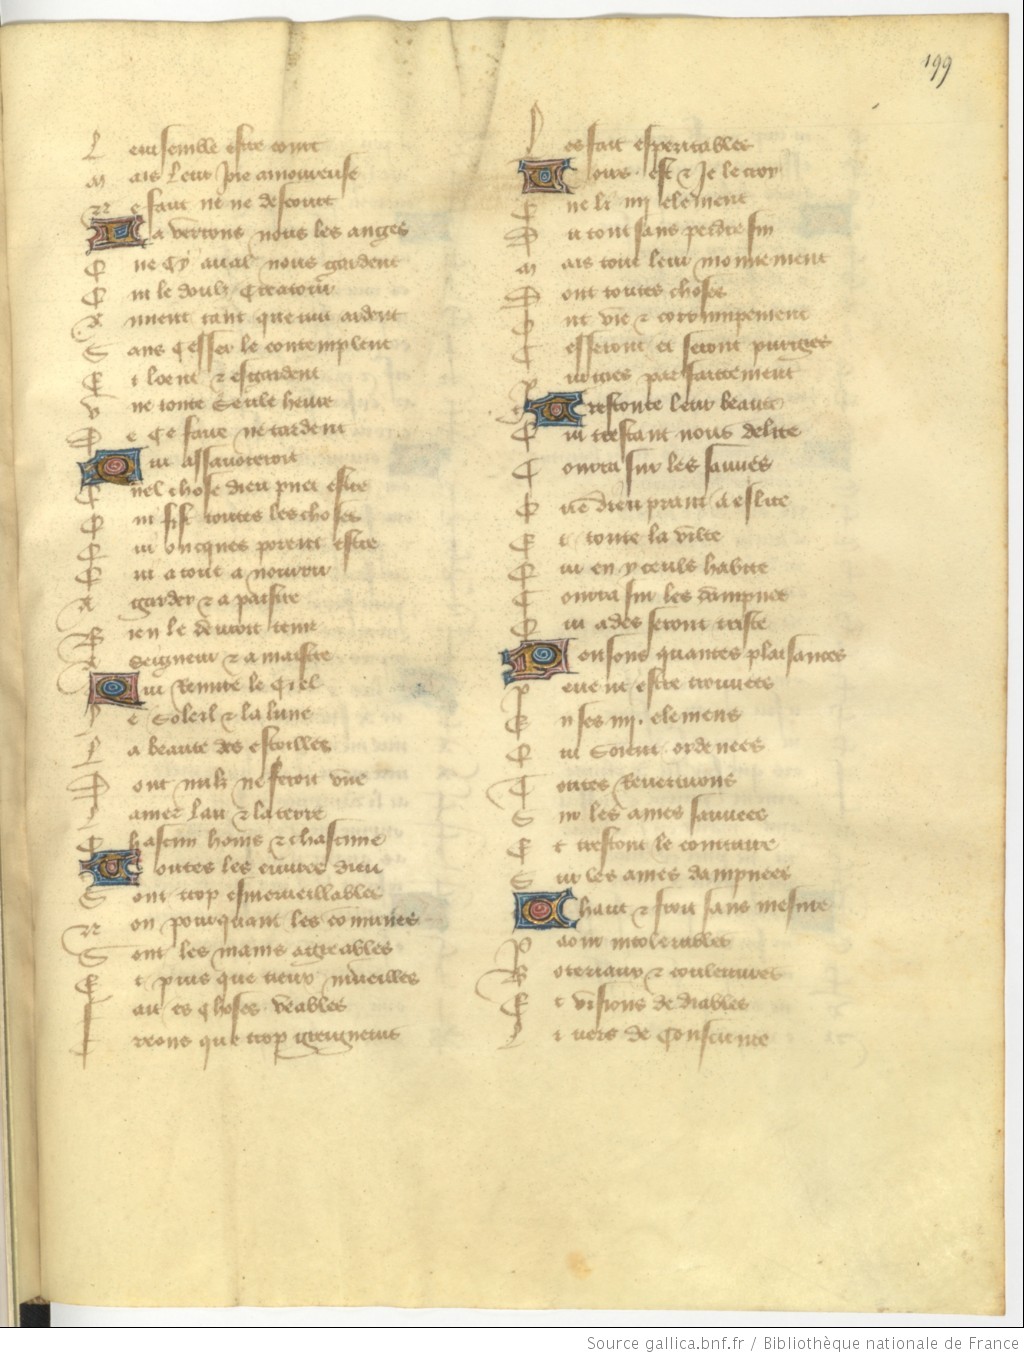 199
L eur semble estre court
M ais leur Joie amoureuse
N e faut ne ne descourt
L a verrons nous les anges
Q ne cy aual nous gardent
Q ui le doulz Createur
A iment tant que tuit ardent
S ans Cesser le contemplent
E t loent & esgardent
V ne toute Seule heure
D e Ce faire ne tardent
Q ui assauoreroit
Q uel chose dieu puet estre
Q ui fist toutes les choses
Q ui oncques porent estre
Q ui a tout a nourrir
A garder & a paistre
B ien le deuroit tenir
A Seigneur & a maistre
Q ui Remire le Ciel
L e Soleil & la lune
L a beaute des estoilles
D ont nulz ne seroit vne
L amer lair & la terre
C hascun homs & chascune
T outes les euures dieu
S ont trop esmerueillables
N on pourquant les comunes
S ont les mains aigreables
E t puis que tieux mueilles
F ait es choses veables
C reons que trop greigneurs
L es fait esperitables
T ous est & Je le croy
Q ne li iiij element
D u tout sans perdre fin
M ais tout leur mouuement
D ont toutes choses
O nt vie & corrumpement
C esseront et seront purges
P urges parfaittement
T restoute leur beaute
Q ui trestant nous delite
C ourra sur les sauues
Q ue dieu prant a eslite
E t toute la vilte
Q ui en yceuls habite
C ourra sur les dampnes
Q ui ades seront triste
P ensons quantes plaisances
P euent estre trouuees
E n ses iiij. elemens
Q ui Seront ordenees
T outes Reuertirons
S ur les ames sauuees
E t trestout le contraire
S ur les ames dampnees
C haut & froit sans mesure
P aour intolerables
B oteriaux & couleuures
E t visions de diables
L i vers de Conscience
Source gallica.bnf.fr / Bibliothèque nationale de France